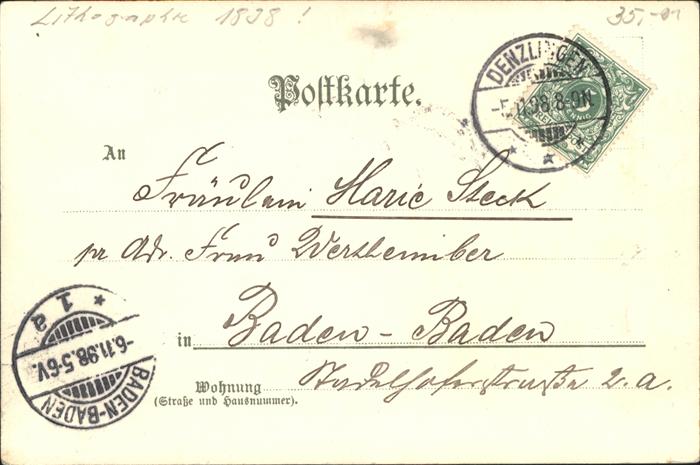 Lithographie 1898 !
35,-
Postkarte.
DENZLINGEN
5.11.98.8-9N
An
Fräulein Marie Steck
pr Adr. Frau
in Baden-Baden
Wohnung
(Straße und Hausnummer).
2.a.
1a
-6.11.98.5-6V.
BADEN-BADEN